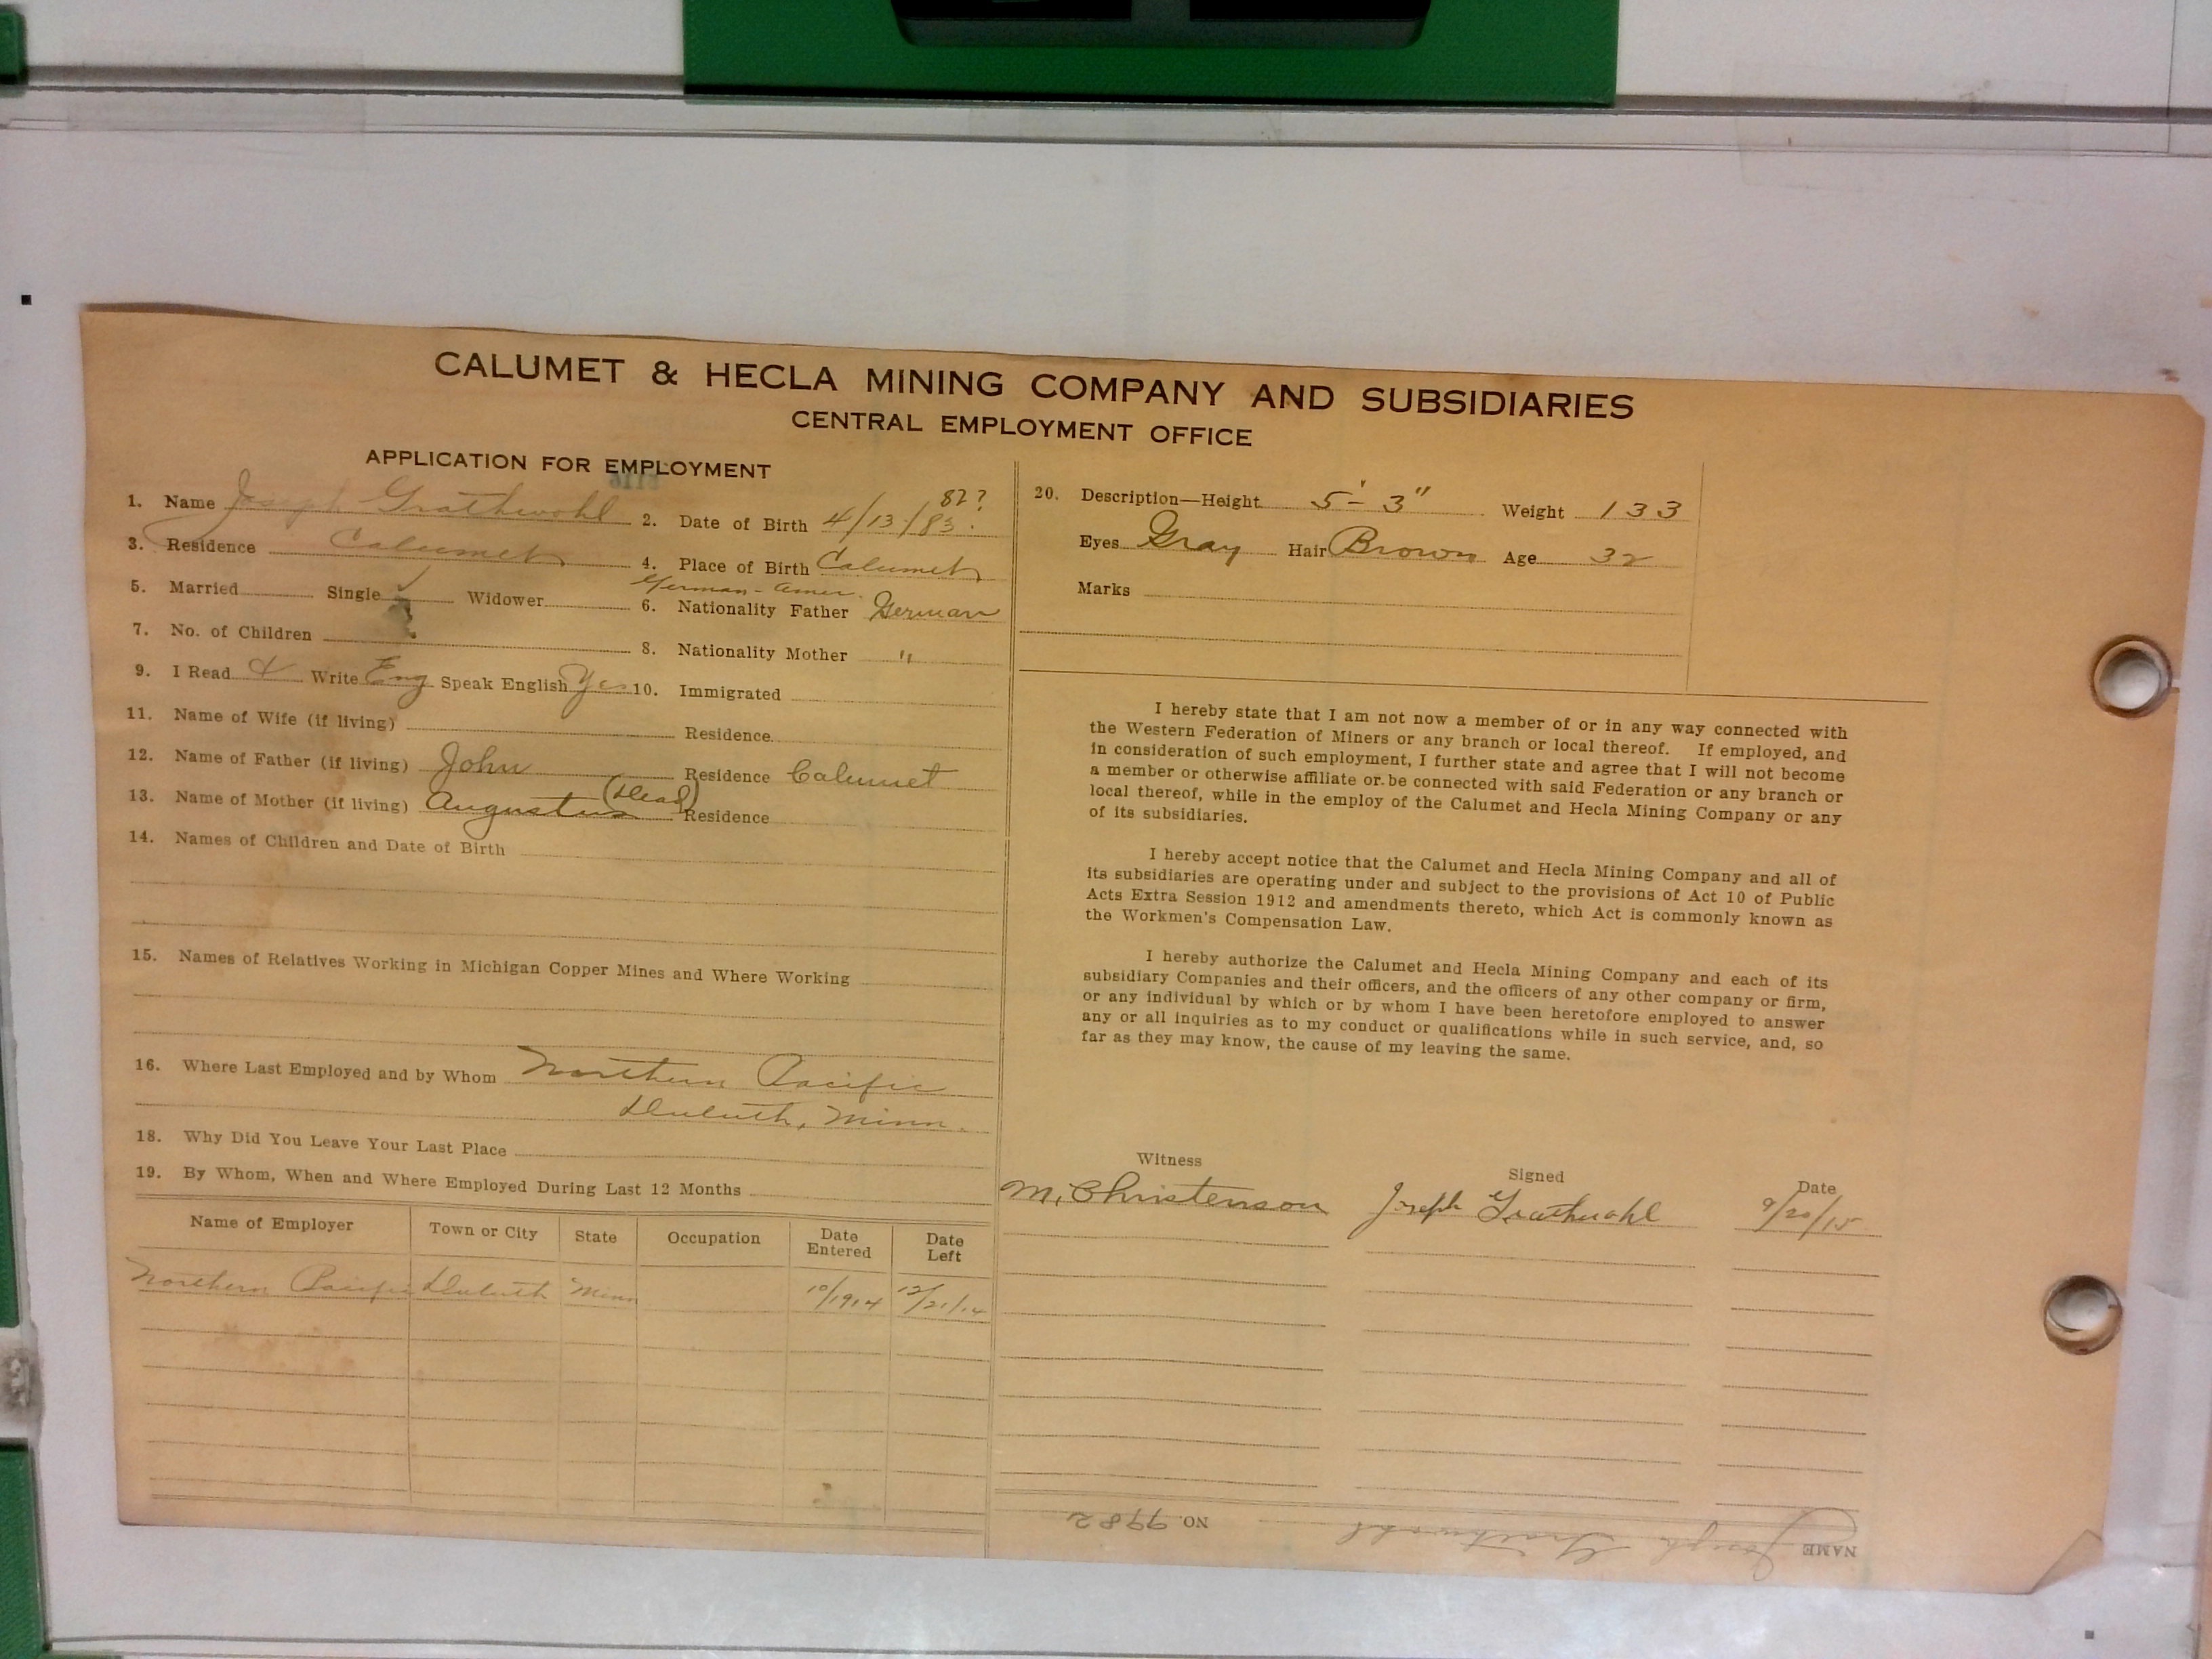 CALUMET & HECLA MINING COMPANY AND SUBSIDIARIES
CENTRAL EMPLOYMENT OFFICE
APPLICATION FOR EMPLOYMENT
1. Name Joseph Grathwohl 2. Date of Birth 4/13/83. 82?
3. Residence Calumet 4. Place of Birth Calumet
German-Amer.
5. Married Single ✓ Widower 6. Nationality Father German
7. No. of Children 8. Nationality Mother "
9. I Read & Write Eng Speak English Yes 10. Immigrated
11. Name of Wife (if living) Residence
12. Name of Father (if living) John Residence Calumet
13. Name of Mother (if living) Augustus (Dead) Residence
14. Names of Children and Date of Birth
15. Names of Relatives Working in Michigan Copper Mines and Where Working
16. Where Last Employed and by Whom Northern Pacific
Duluth, Minn.
18. Why Did You Leave Your Last Place
19. By Whom, When and Where Employed During Last 12 Months
Name of Employer Town or City State Occupation Date Entered Date Left
Northern Pacific Duluth Minn 10/1914 12/21/14
20. Description—Height 5'-3" Weight 133
Eyes Gray Hair Brown Age 32
Marks
I hereby state that I am not now a member of or in any way connected with
the Western Federation of Miners or any branch or local thereof. If employed, and
in consideration of such employment, I further state and agree that I will not become
a member or otherwise affiliate or be connected with said Federation or any branch or
local thereof, while in the employ of the Calumet and Hecla Mining Company or any
of its subsidiaries.
I hereby accept notice that the Calumet and Hecla Mining Company and all of
its subsidiaries are operating under and subject to the provisions of Act 10 of Public
Acts Extra Session 1912 and amendments thereto, which Act is commonly known as
the Workmen's Compensation Law.
I hereby authorize the Calumet and Hecla Mining Company and each of its
subsidiary Companies and their officers, and the officers of any other company or firm,
or any individual by which or by whom I have been heretofore employed to answer
any or all inquiries as to my conduct or qualifications while in such service, and, so
far as they may know, the cause of my leaving the same.
Witness Signed Date
M. Christenson Joseph Grathwohl 9/20/15
NAME Joseph Grathwohl NO. 9982